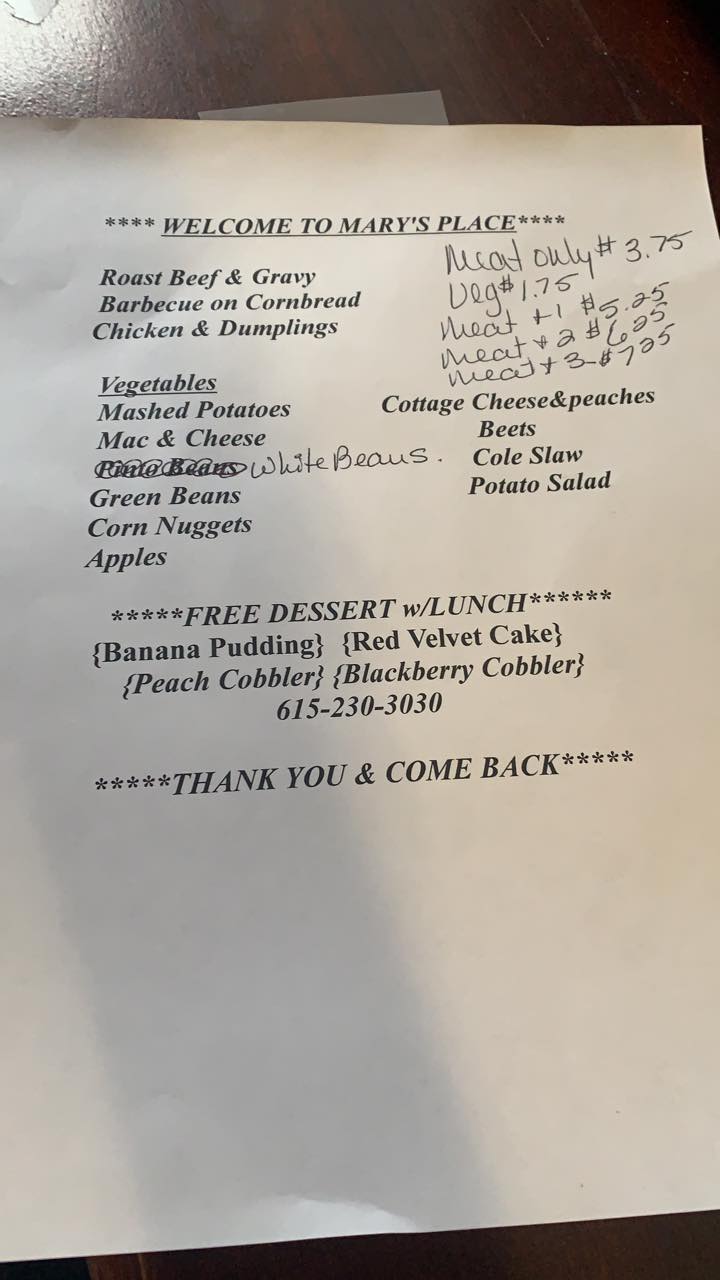 **** WELCOME TO MARY'S PLACE****
Roast Beef & Gravy
Barbecue on Cornbread
Chicken & Dumplings
Meat only $ 3.75
Veg $1.75
Meat +1 $5.25
Meat + 2 $6.25
Meat + 3-$7.25
Vegetables
Mashed Potatoes
Mac & Cheese
Pinto Beans White Beans.
Green Beans
Corn Nuggets
Apples
Cottage Cheese&peaches
Beets
Cole Slaw
Potato Salad
*****FREE DESSERT w/LUNCH******
{Banana Pudding} {Red Velvet Cake}
{Peach Cobbler} {Blackberry Cobbler}
615-230-3030
*****THANK YOU & COME BACK*****